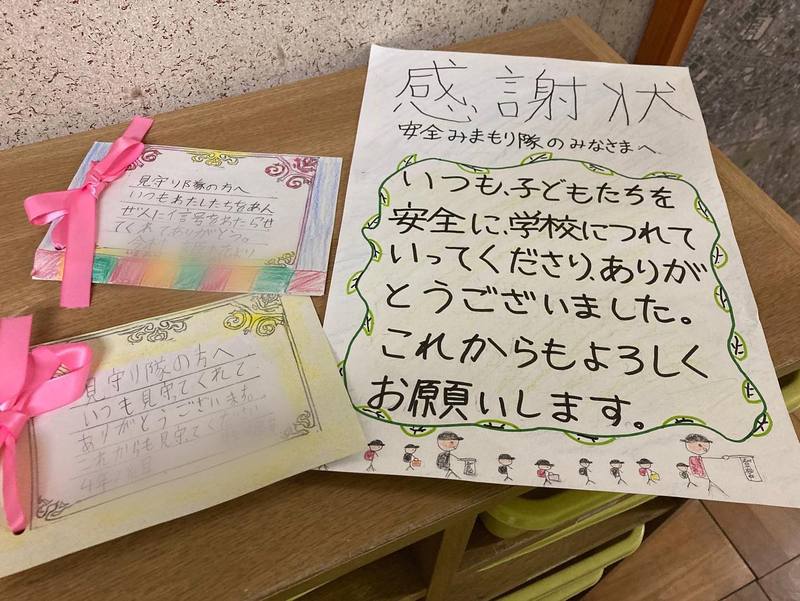 見守り隊の方へ
いつもわたしたちをあん
ぜんに信号をわたらせ
てくれてありがとう。
見守り隊の方へ
いつも見守ってくれて
ありがとうございます。
これからも見守ってください
4年
感謝状
安全みまもり隊のみなさまへ
いつも、子どもたちを
安全に、学校につれて
いってくださり、ありが
とうございました。
これからもよろしく
お願いします。